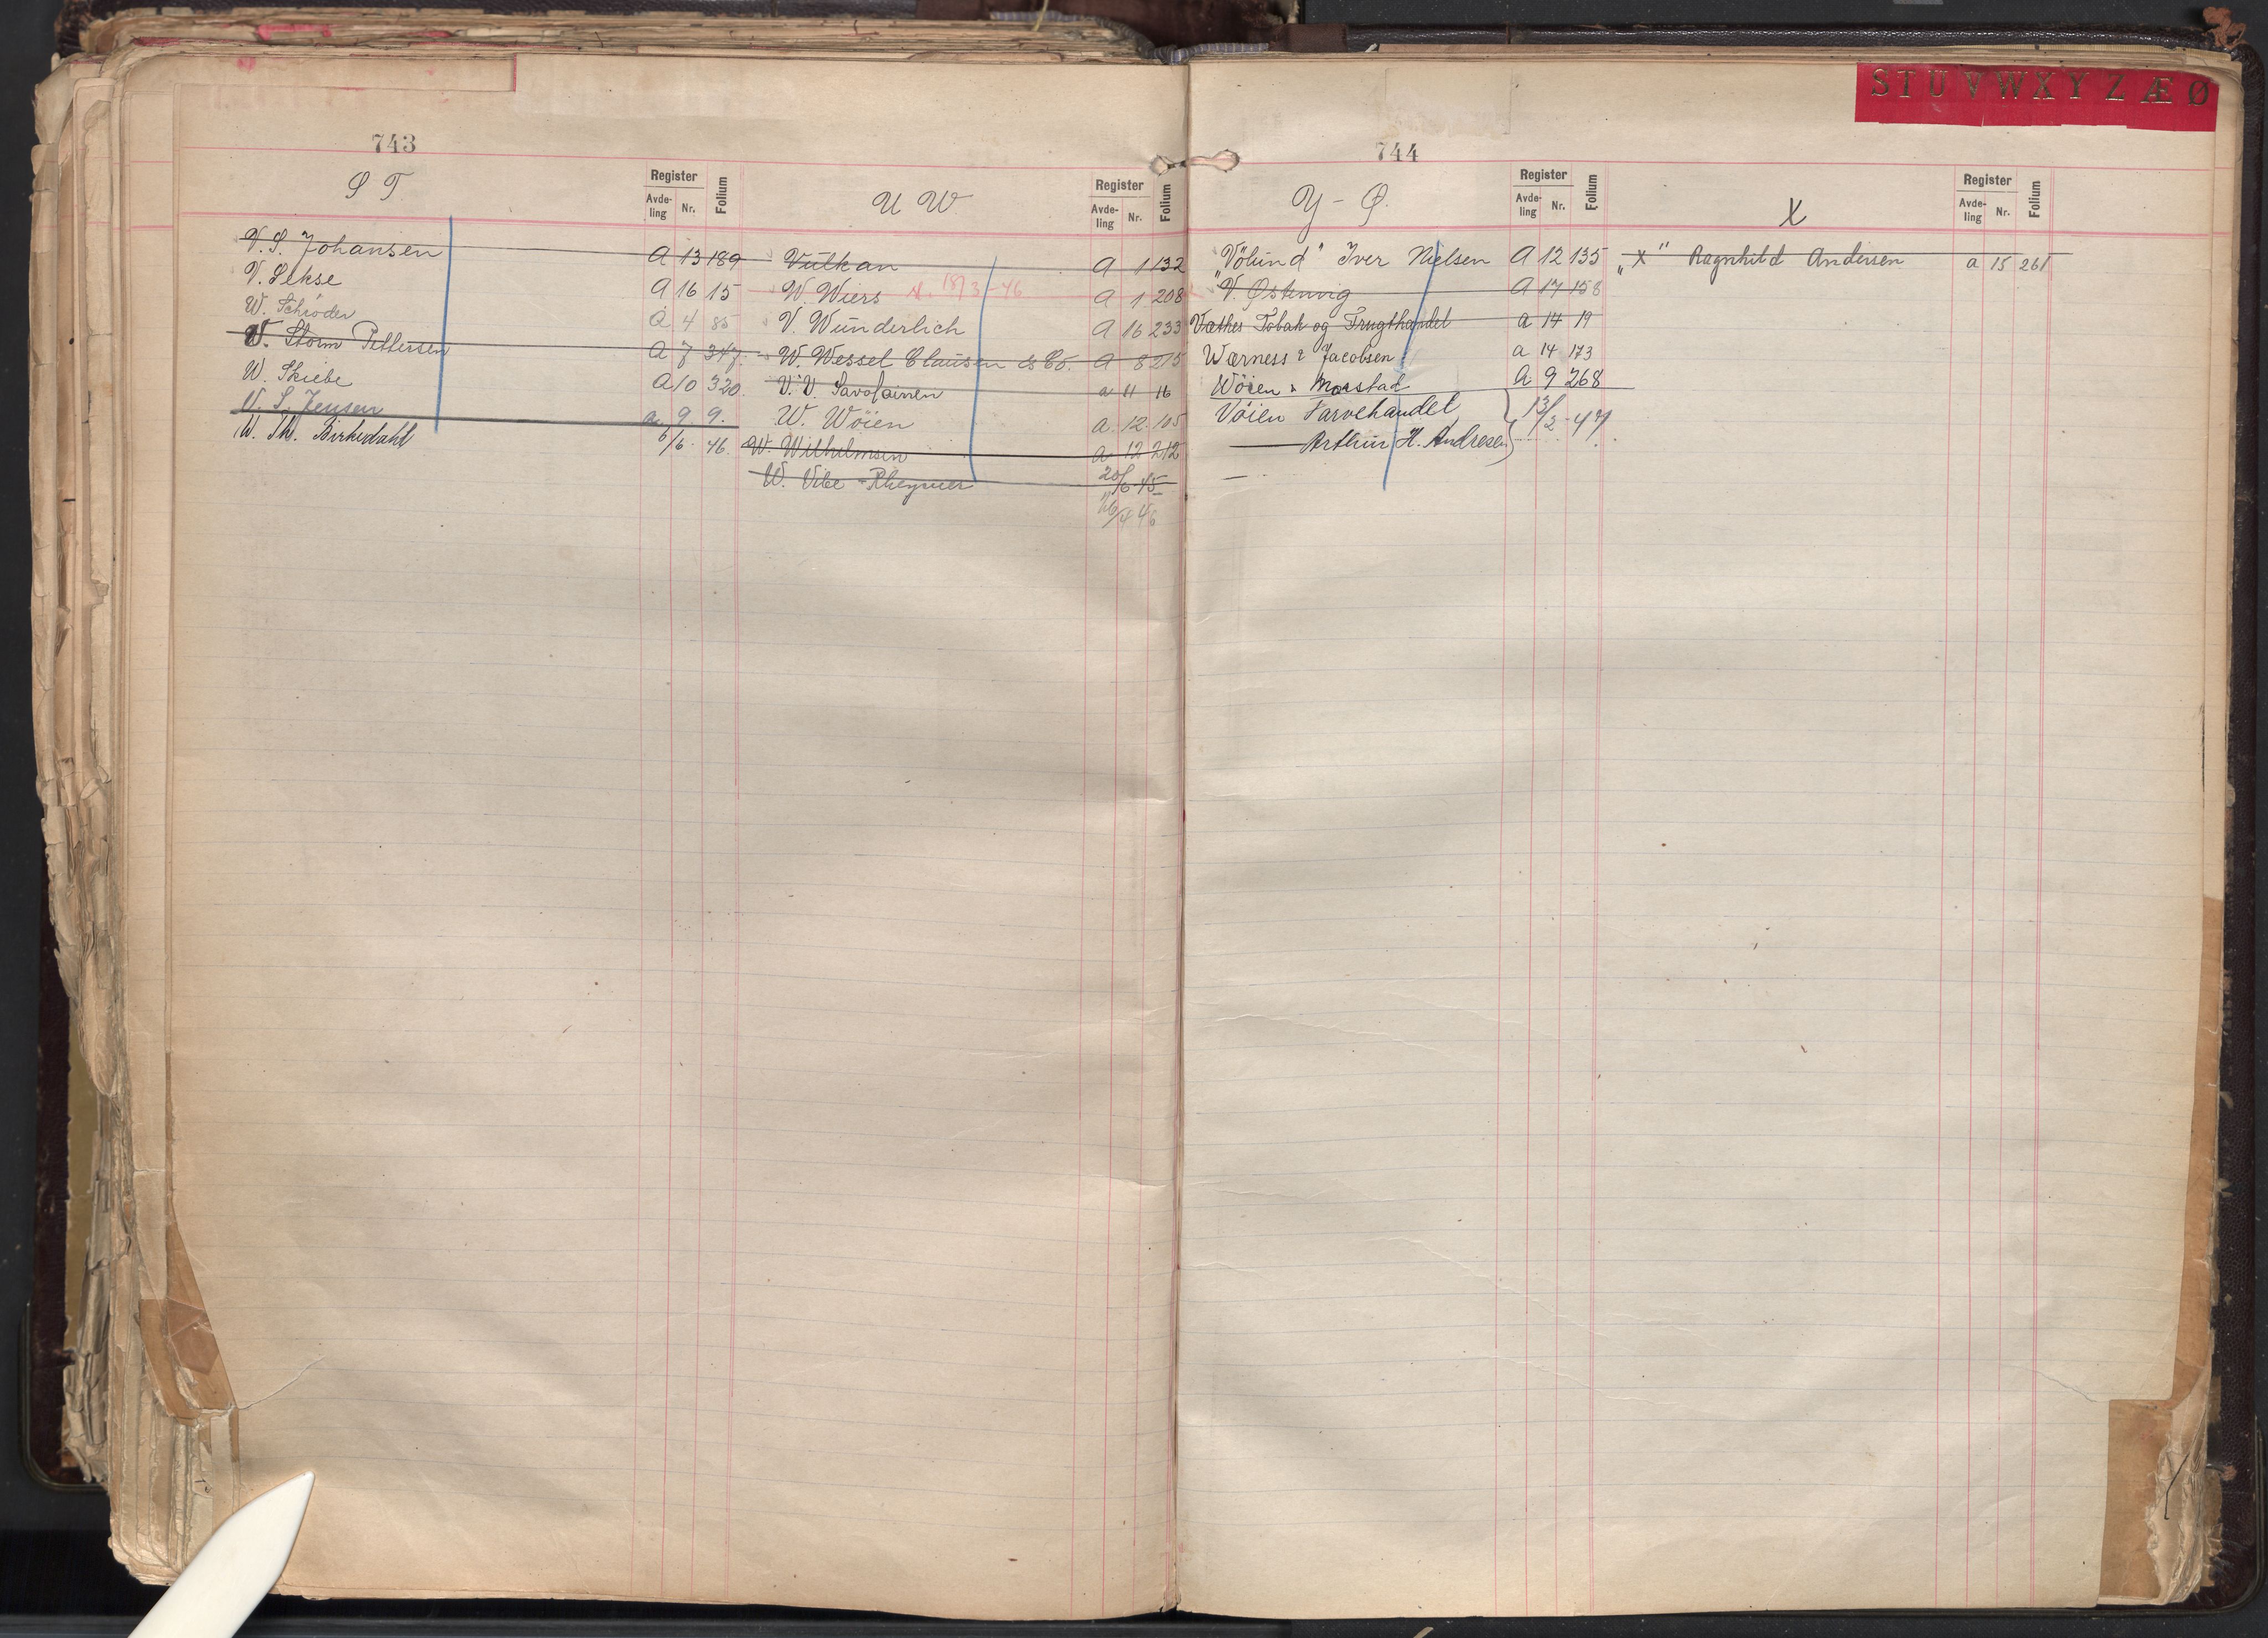 743
S T
Register
Avde-
ling
Nr.
Folium
V. S. Johansen A 13 189
V. Sekse A 16 15
W. Schröder A 4 85
W. Storm Pettersen A 7 347
W. Skiebe A 10 320.
W. S. Jensen a 9. 9.
W. Th. Birkedahl 6/6 46.
U W.
Register
Avde-
ling
Nr.
Folium
Vulkan A 1 132
W. Wiers 18/3-46 A 1 208
V. Wunderlich A 16 233
W. Wessel Clausen & Co. A 8 215
V. V. Savolainen a 11 16
W. Wöien a 12 105
W. Wilhelmsen a 12 212
W. Vibe - 20/6-45
4 46
STUVWXYZÆØ
744
Y - Ø.
Register
Avde-
ling
Nr.
Folium
"Völund" Iver Nielsen A 12 135
V. Østenvig A 17 158
Tobak og Frugthandel a 14 19
Wærness & Jacobsen a 14 173
Wöien & Morstad A 9 268
Vöien Farvehandel } 13/2-47
Arthur H. Andresen
X
Register
Avde-
ling
Nr.
Folium
„X" Ragnhild Andersen a 15 261